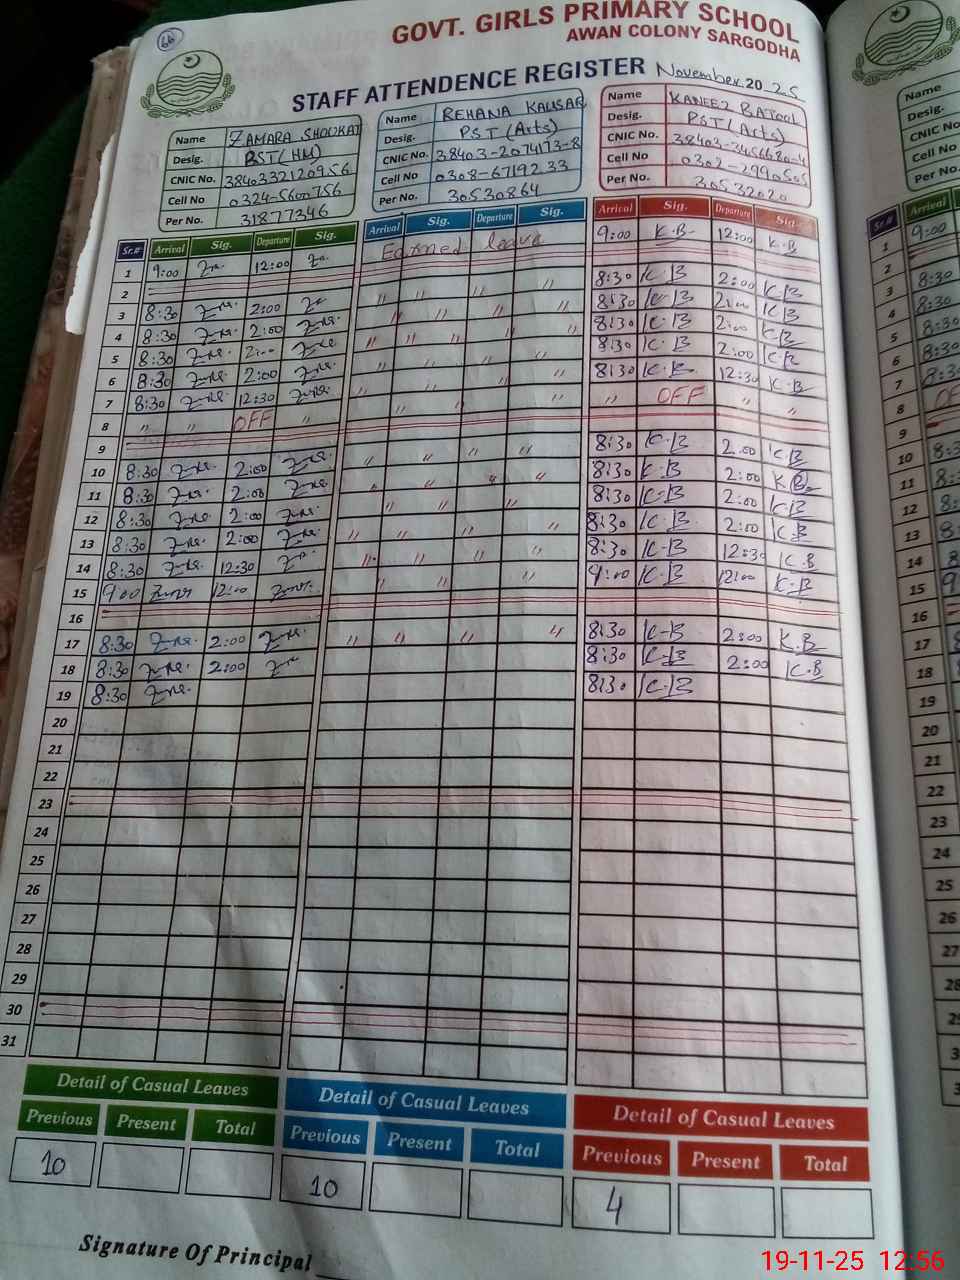 66
GOVT. GIRLS PRIMARY SCHOOL
AWAN COLONY SARGODHA
STAFF ATTENDENCE REGISTER November 2025
Name ZAMARA SHOUKAT
Desig. PST (HM)
CNIC No. 3840332120956
Cell No 0324-5600756
Per No. 31877346
Name REHANA KAUSAR
Desig. PST (Arts)
CNIC No. 38403-2074173-8
Cell No 0308-6719233
Per No. 30530864
Name KANEEZ BATOOL
Desig. PST (Arts)
CNIC No. 38403-3456680-4
Cell No 0302-2990505
Per No. 30532020
Sr.# Arrival Sig. Departure Sig. Arrival Sig. Departure Sig. Arrival Sig. Departure Sig.
1 9:00 12:00 Earned leave 9:00 K-B 12:00 K.B
2
3 8:30 2:00 " " " " 8:30 K-B 2:00 K.B
4 8:30 2:00 " " " " 8:30 K-B 2:00 K.B
5 8:30 2:00 " " " " 8:30 K-B 2:00 K.B
6 8:30 2:00 " " " " 8:30 K-B 2:00 K.B
7 8:30 12:30 " " " " 8:30 K-B 12:30 K-B
8 " " OFF " " " " " OFF " "
9
10 8:30 2:00 " " " " 8:30 K-B 2:00 K-B
11 8:30 2:00 " " " " 8:30 K-B 2:00 K.B
12 8:30 2:00 " " " " 8:30 K-B 2:00 K-B
13 8:30 2:00 " " " " 8:30 K-B 2:00 K-B
14 8:30 12:30 " " " " 8:30 K-B 12:30 K-B
15 9:00 12:00 " " " 9:00 K-B 12:00 K-B
16
17 8:30 2:00 " " " " 8:30 K-B 2:00 K.B
18 8:30 2:00 8:30 K-B 2:00 K.B
19 8:30 8:30 K-B
20
21
22
23
24
25
26
27
28
29
30
31
Detail of Casual Leaves Detail of Casual Leaves Detail of Casual Leaves
Previous Present Total Previous Present Total Previous Present Total
10 10 4
Signature Of Principal
Name
Desig.
CNIC No
Cell No
Per No.
Sr.# Arrival
1 9:00
2
3 8:30
4 8:30
5 8:30
6 8:30
7 8:30
8
9
10
11
12
13
14
15
16
17
18
19
20
21
22
23
24
25
26
27
28
19-11-25 12:56